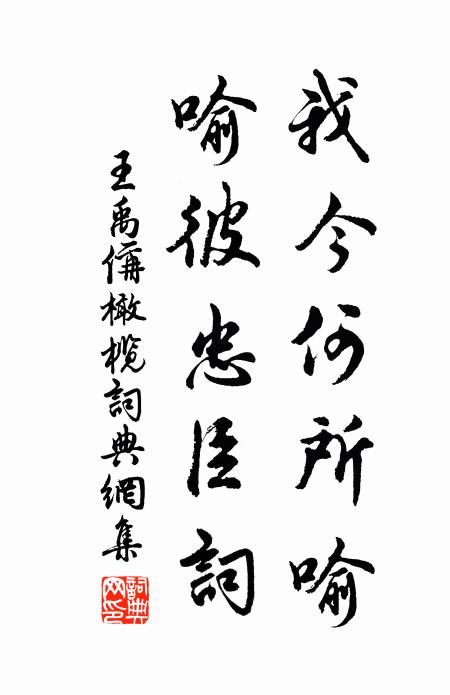 我今何所喻
喻彼忠臣詞
王禹偁橄欖詞典網集
詞典網印